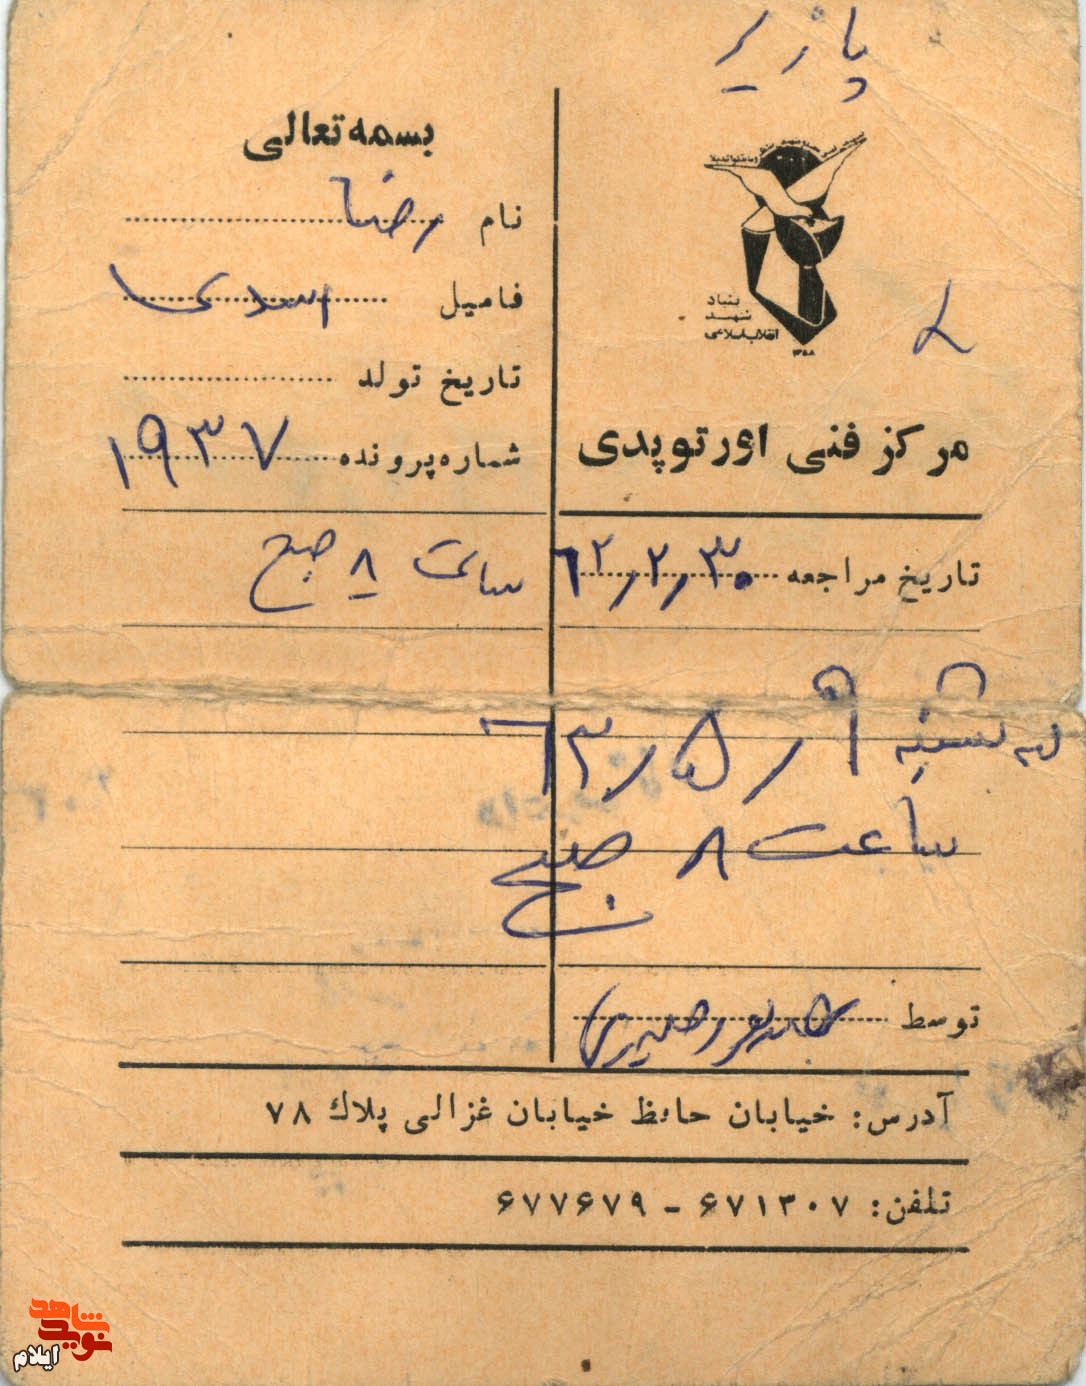 بنیاد
شهید
انقلاب اسلامی
۱۳۵۸
مرکز فنی اورتوپدی
بسمه تعالی
نام رضا
فامیل اسدی
تاریخ تولد
شماره پرونده ۱۹۳۷
تاریخ مراجعه ۶۲/۲/۳۰
ساعت ۸ صبح
سه شنبه ۹/۵/۶۳
ساعت ۸ صبح
توسط
آدرس: خیابان حافظ خیابان غزالی پلاک ۷۸
تلفن: ۶۷۱۳۰۷ - ۶۷۷۶۷۹
نوید شاهد
ایلام